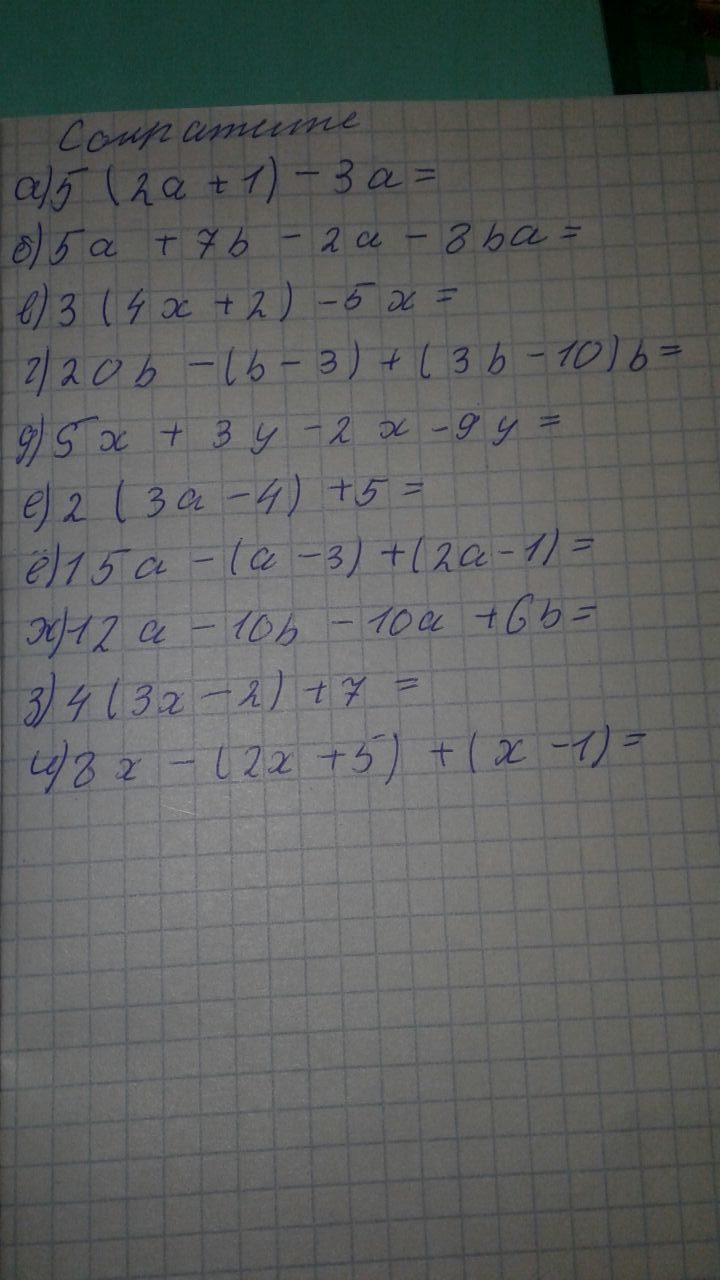 Сократите
а) 5 (2a + 1) - 3a =
б) 5a + 7b - 2a - 8ba =
в) 3 (4x + 2) - 5x =
г) 20b - (b - 3) + (3b - 10)b =
д) 5x + 3y - 2x - 9y =
е) 2 (3a - 4) + 5 =
ё) 15a - (a - 3) + (2a - 1) =
ж) 12a - 10b - 10a + 6b =
з) 4 (3x - 2) + 7 =
и) 8x - (2x + 5) + (x - 1) =